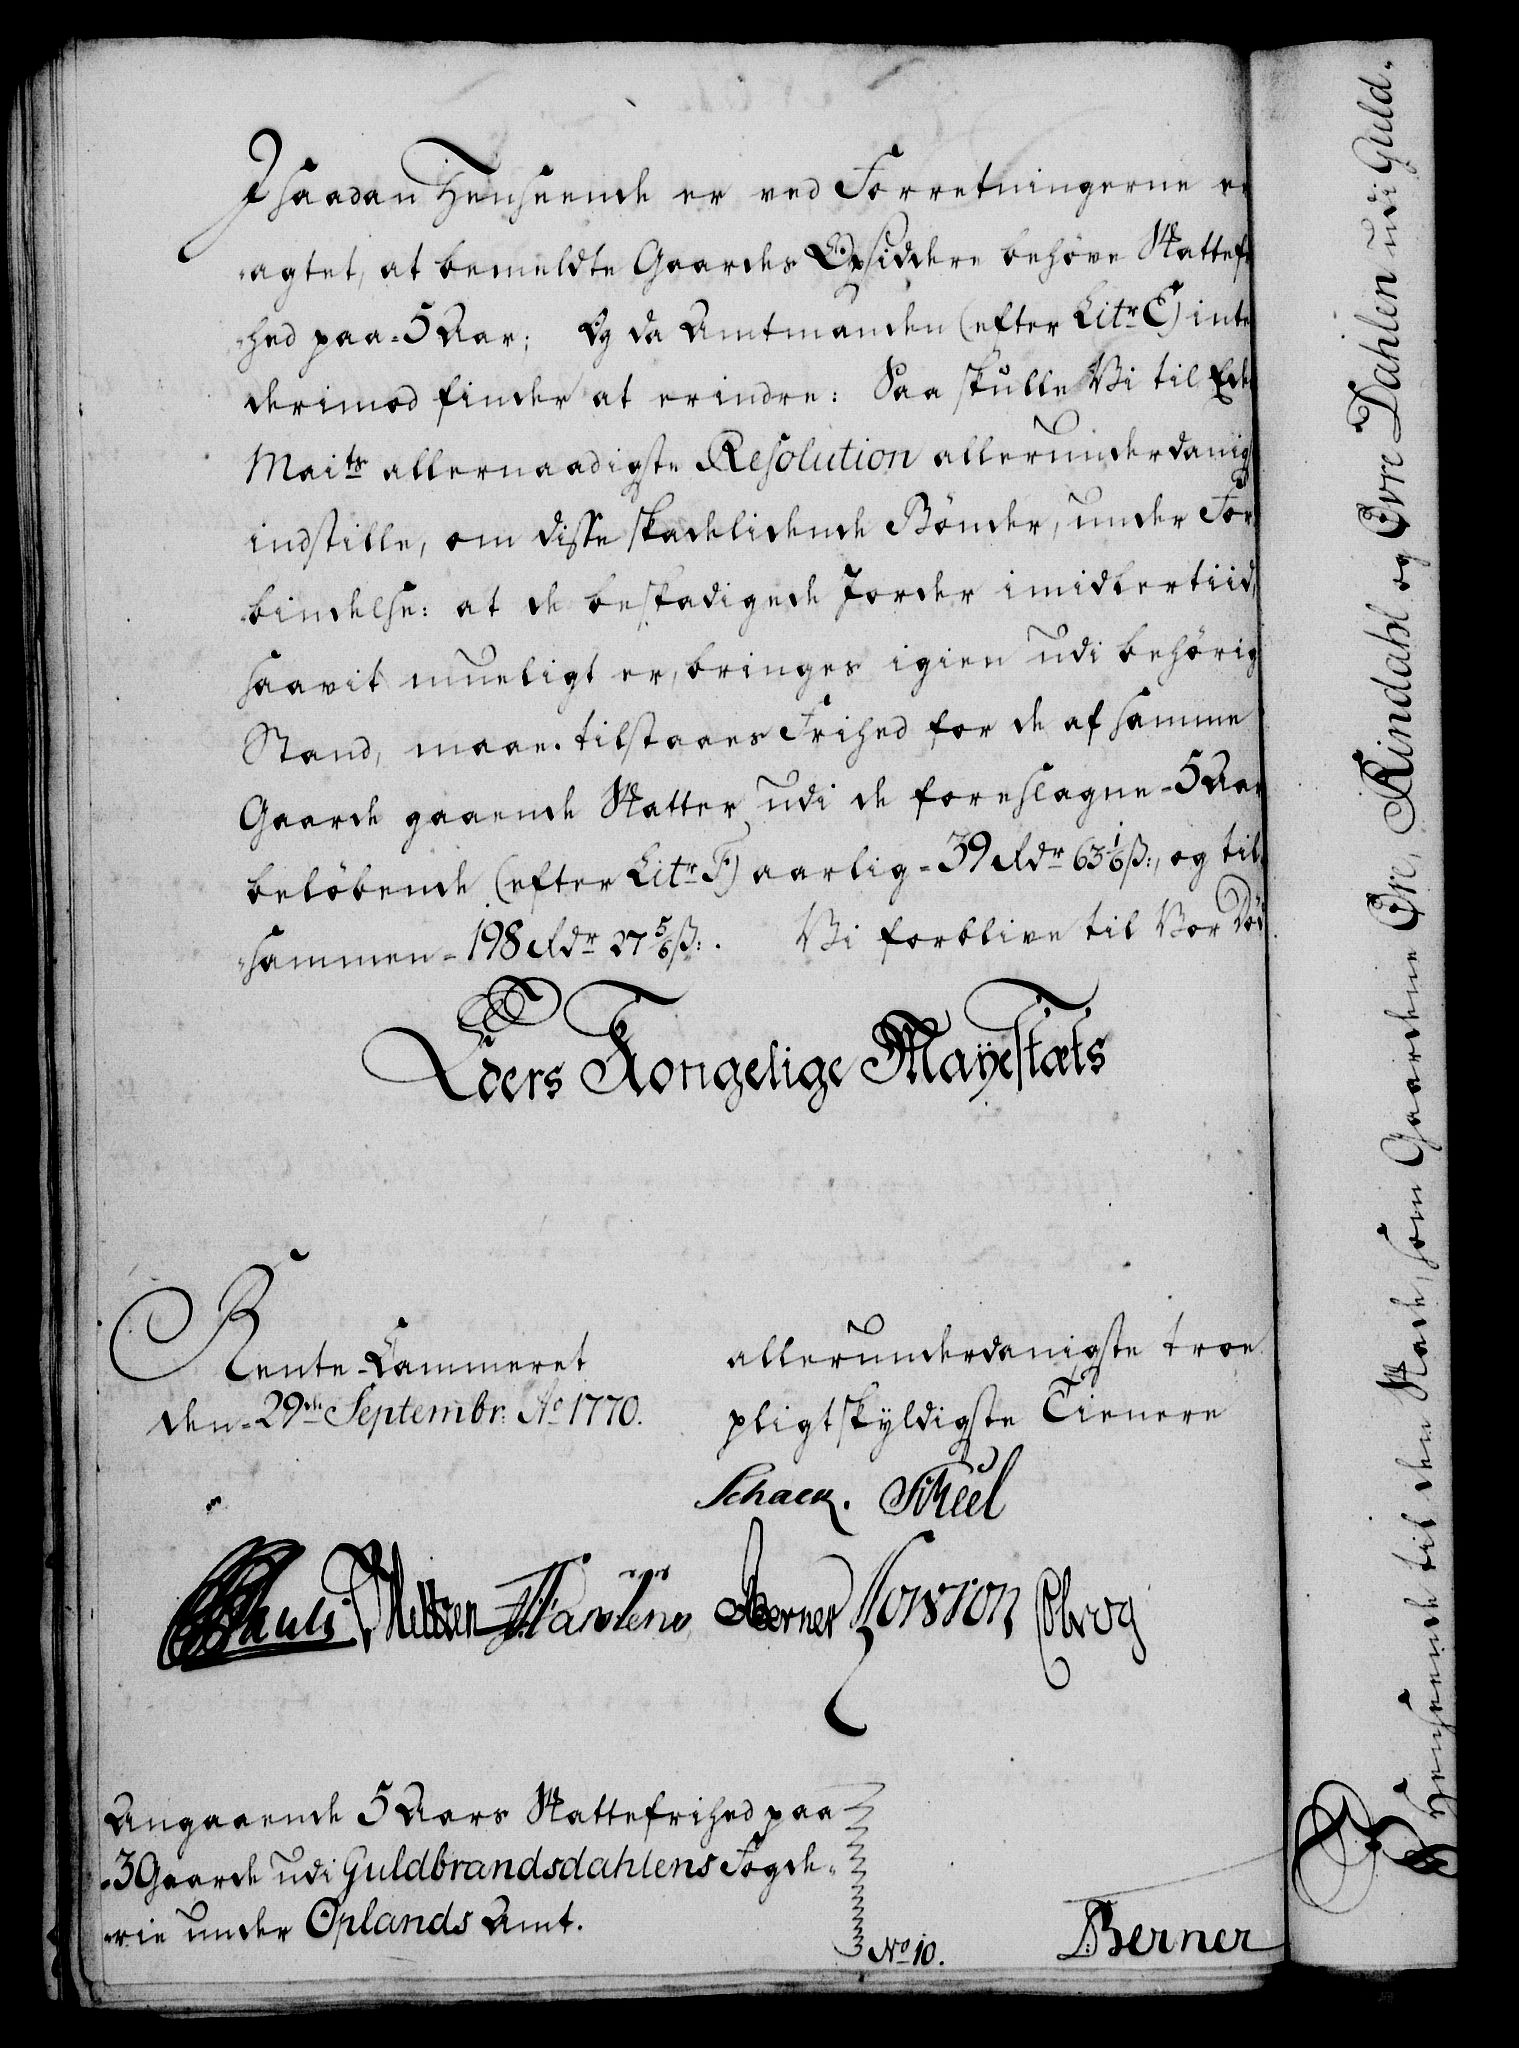 I saadan Henseende er ved Forretningerne er
agtet, at bemeldte Gaardes Opsiddere behöve Skattefr
hed paa 5 Aar; Og da Amtmanden (efter Litr E) inte
derimod finder at erindre: Saa skulle Vi til Ede
Maits allernaadigste Resolution allerunderdanig
indstille, om disse skadelidende Bönder, under For
bindelse: at de beskadigede Jorder imidlertiid,
saavit mueligt er, bringes igien udi behörig
Stand, maae tilstaaes Frihed for de af samme
Gaarde gaaende Skatter udi de foreslagne 5 Aar
belöbende (efter Litr F) aarlig 39 Rdr 63 1/6 ß:, og til
sammen 198 Rdr 27 5/6 ß: . Vi forblive til Vor Död
Eders Kongelige Mayestæts
Rente-Cammeret
den 29de Septembr: Ao 1770.
allerunderdanigste troe
pligtskÿldigste Tienere
Schack. Skeel
Berner
Angaaende 5 Aars Skattefrihed paa
3 Gaarde udi Guldbrandsdahlens Fogde-
rie under Oplands Amt.
No 10.
Berner
I Henseende til den Skade, som Gaardene Öre, Rindahl og Övre Dahlen udi Guld-